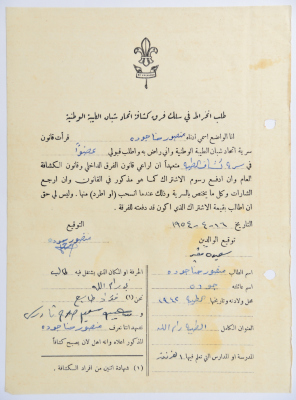 طلب انخراط في سلك فرق كشافة اتحاد شبان الطيبة الوطنية
انا الواضع اسمي ادناه منصور حنا جوده قرأت قانون
سرية اتحاد شبان الطيبة الوطنية واني راض به واطلب قبولي عضواً
في سرية متعهداً ان اراعي قانون الفرق الداخلي وقانون الكشافة
العام وان ادفع رسوم الاشتراك كما هو مذكور في القانون وان ارجع
الشارات وكل ما يختص بالسرية وذلك عندما انسحب (او اطرد) منها. وليس لي حق
ان اطالب بقيمة الاشتراك الذي اكون قد دفعته للفرقة.
التاريخ ١٦-٤-١٩٥٤ التوقيع
منصور جوده
توقيع الوالدين
اسم الطالب منصور حنا جوده
اسم عائلته جوده
محل ولادته وتاريخها الطيبة
العنوان الكامل الطيبة رام الله
المدرسة او المدارس التي تعلم فيها
الحرفة او المكان الذي يشتغل فيه طالب
رام الله
نحن (١)
نشهد اننا نعرف منصور حنا جوده
المذكور اعلاه وانه اهل لان يصبح كشافاً
(١) شهادة اثنين من افراد الكشافة.